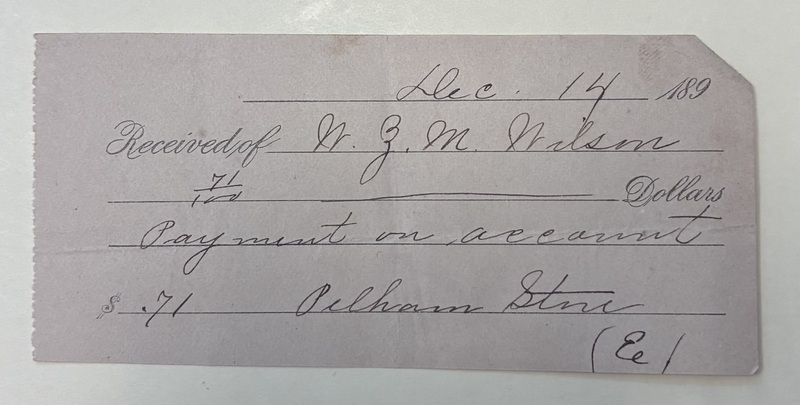 Dec. 14 189
Received of W. Z. M. Wilson
71/100 Dollars
Payment on account
$ .71 Pelham Store
(Ee)